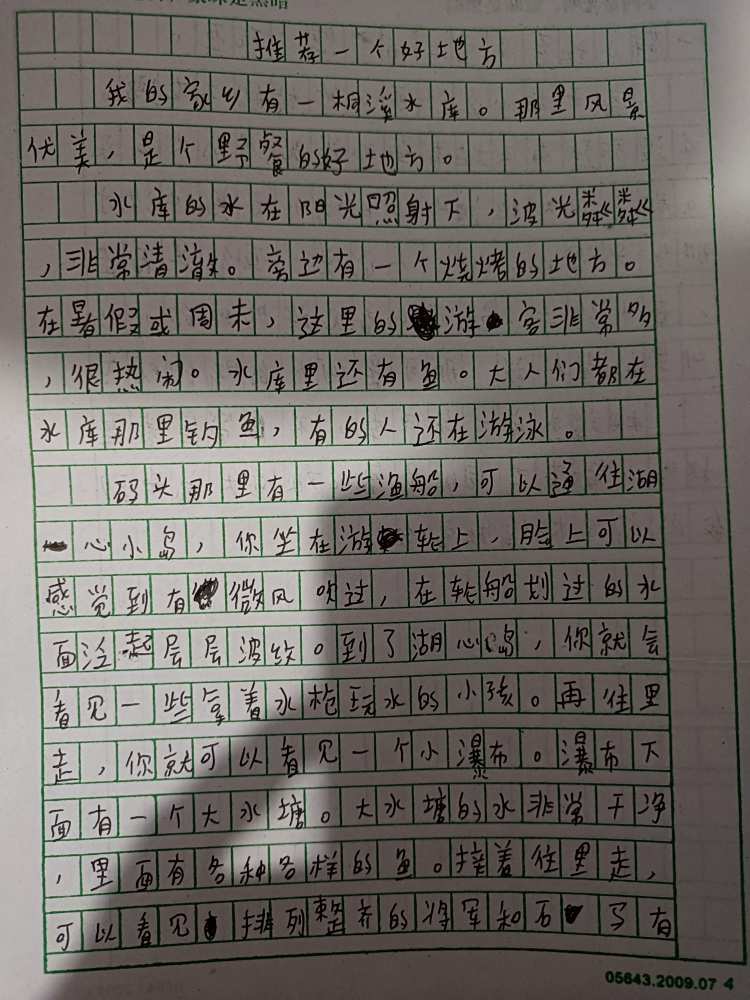 推荐一个好地方
我的家乡有一桐溪水库。那里风景
优美，是个野餐的好地方。
水库的水在阳光照射下，波光粼粼
，非常清澈。旁边有一个烧烤的地方。
在暑假或周末，这里的游客非常多
，很热闹。水库里还有鱼。大人们都在
水库那里钓鱼，有的人还在游泳。
码头那里有一些渔船，可以通往湖
心小岛，你坐在游轮上，脸上可以
感觉到有微风吹过，在轮船划过的水
面泛起层层波纹。到了湖心岛，你就会
看见一些拿着水枪玩水的小孩。再往里
走，你就可以看见一个小瀑布。瀑布下
面有一个大水塘。大水塘的水非常干净
，里面有各种各样的鱼。接着往里走，
可以看见排列整齐的将军和石 了有
05643.2009.07 4